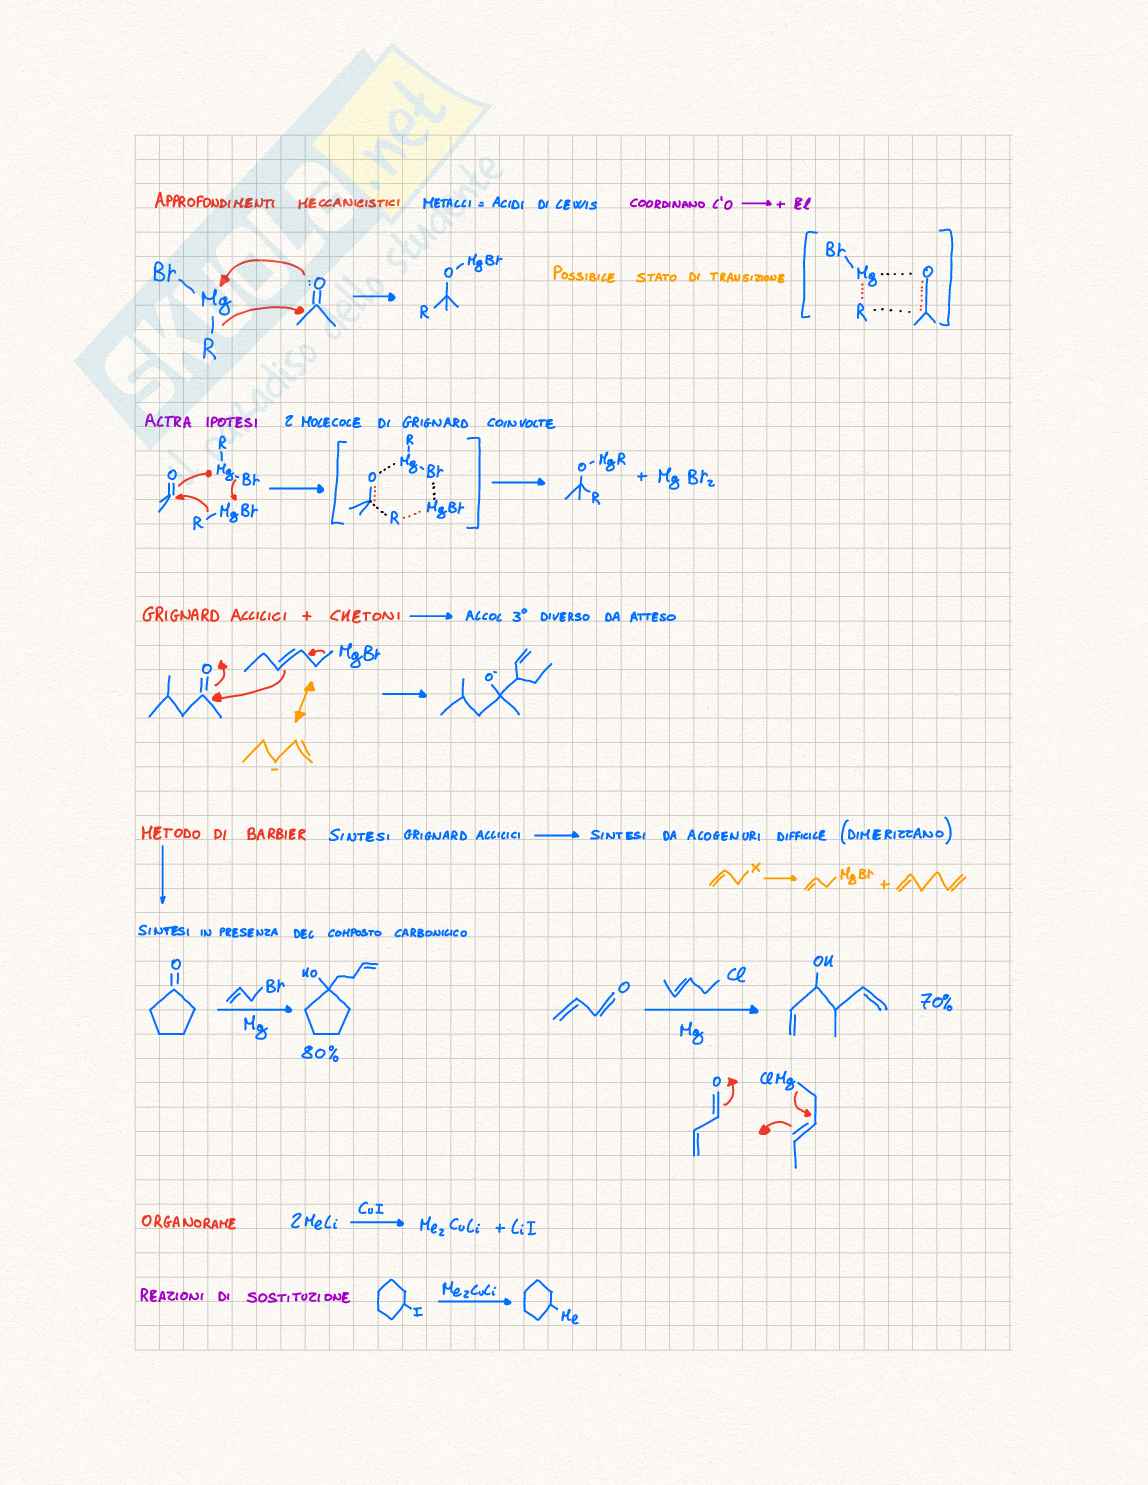 APPROFONDIMENTI MECCANICISTICI METALLI = ACIDI DI LEWIS COORDINANO L'O → + El
Br Mg R O
O MgBr R
POSSIBILE STATO DI TRANSIZIONE
Br Mg O R
ALTRA IPOTESI 2 MOLECOLE DI GRIGNARD COINVOLTE
O R Mg Br R MgBr
O R Mg Br R MgBr
O MgR R + MgBr2
GRIGNARD ALLILICI + CHETONI → ALCOL 3° DIVERSO DA ATTESO
O MgBr
O-
METODO DI BARBIER SINTESI GRIGNARD ALLILICI → SINTESI DA ALOGENURI DIFFICILE (DIMERIZZANO)
X → MgBr +
SINTESI IN PRESENZA DEL COMPOSTO CARBONILICO
O Br Mg HO
80%
O Cl Mg OH 70%
O ClMg
ORGANORAME 2MeLi CuI → Me2CuLi + LiI
REAZIONI DI SOSTITUZIONE I Me2CuLi → Me
SKUOLA.net
il paradiso dello studente